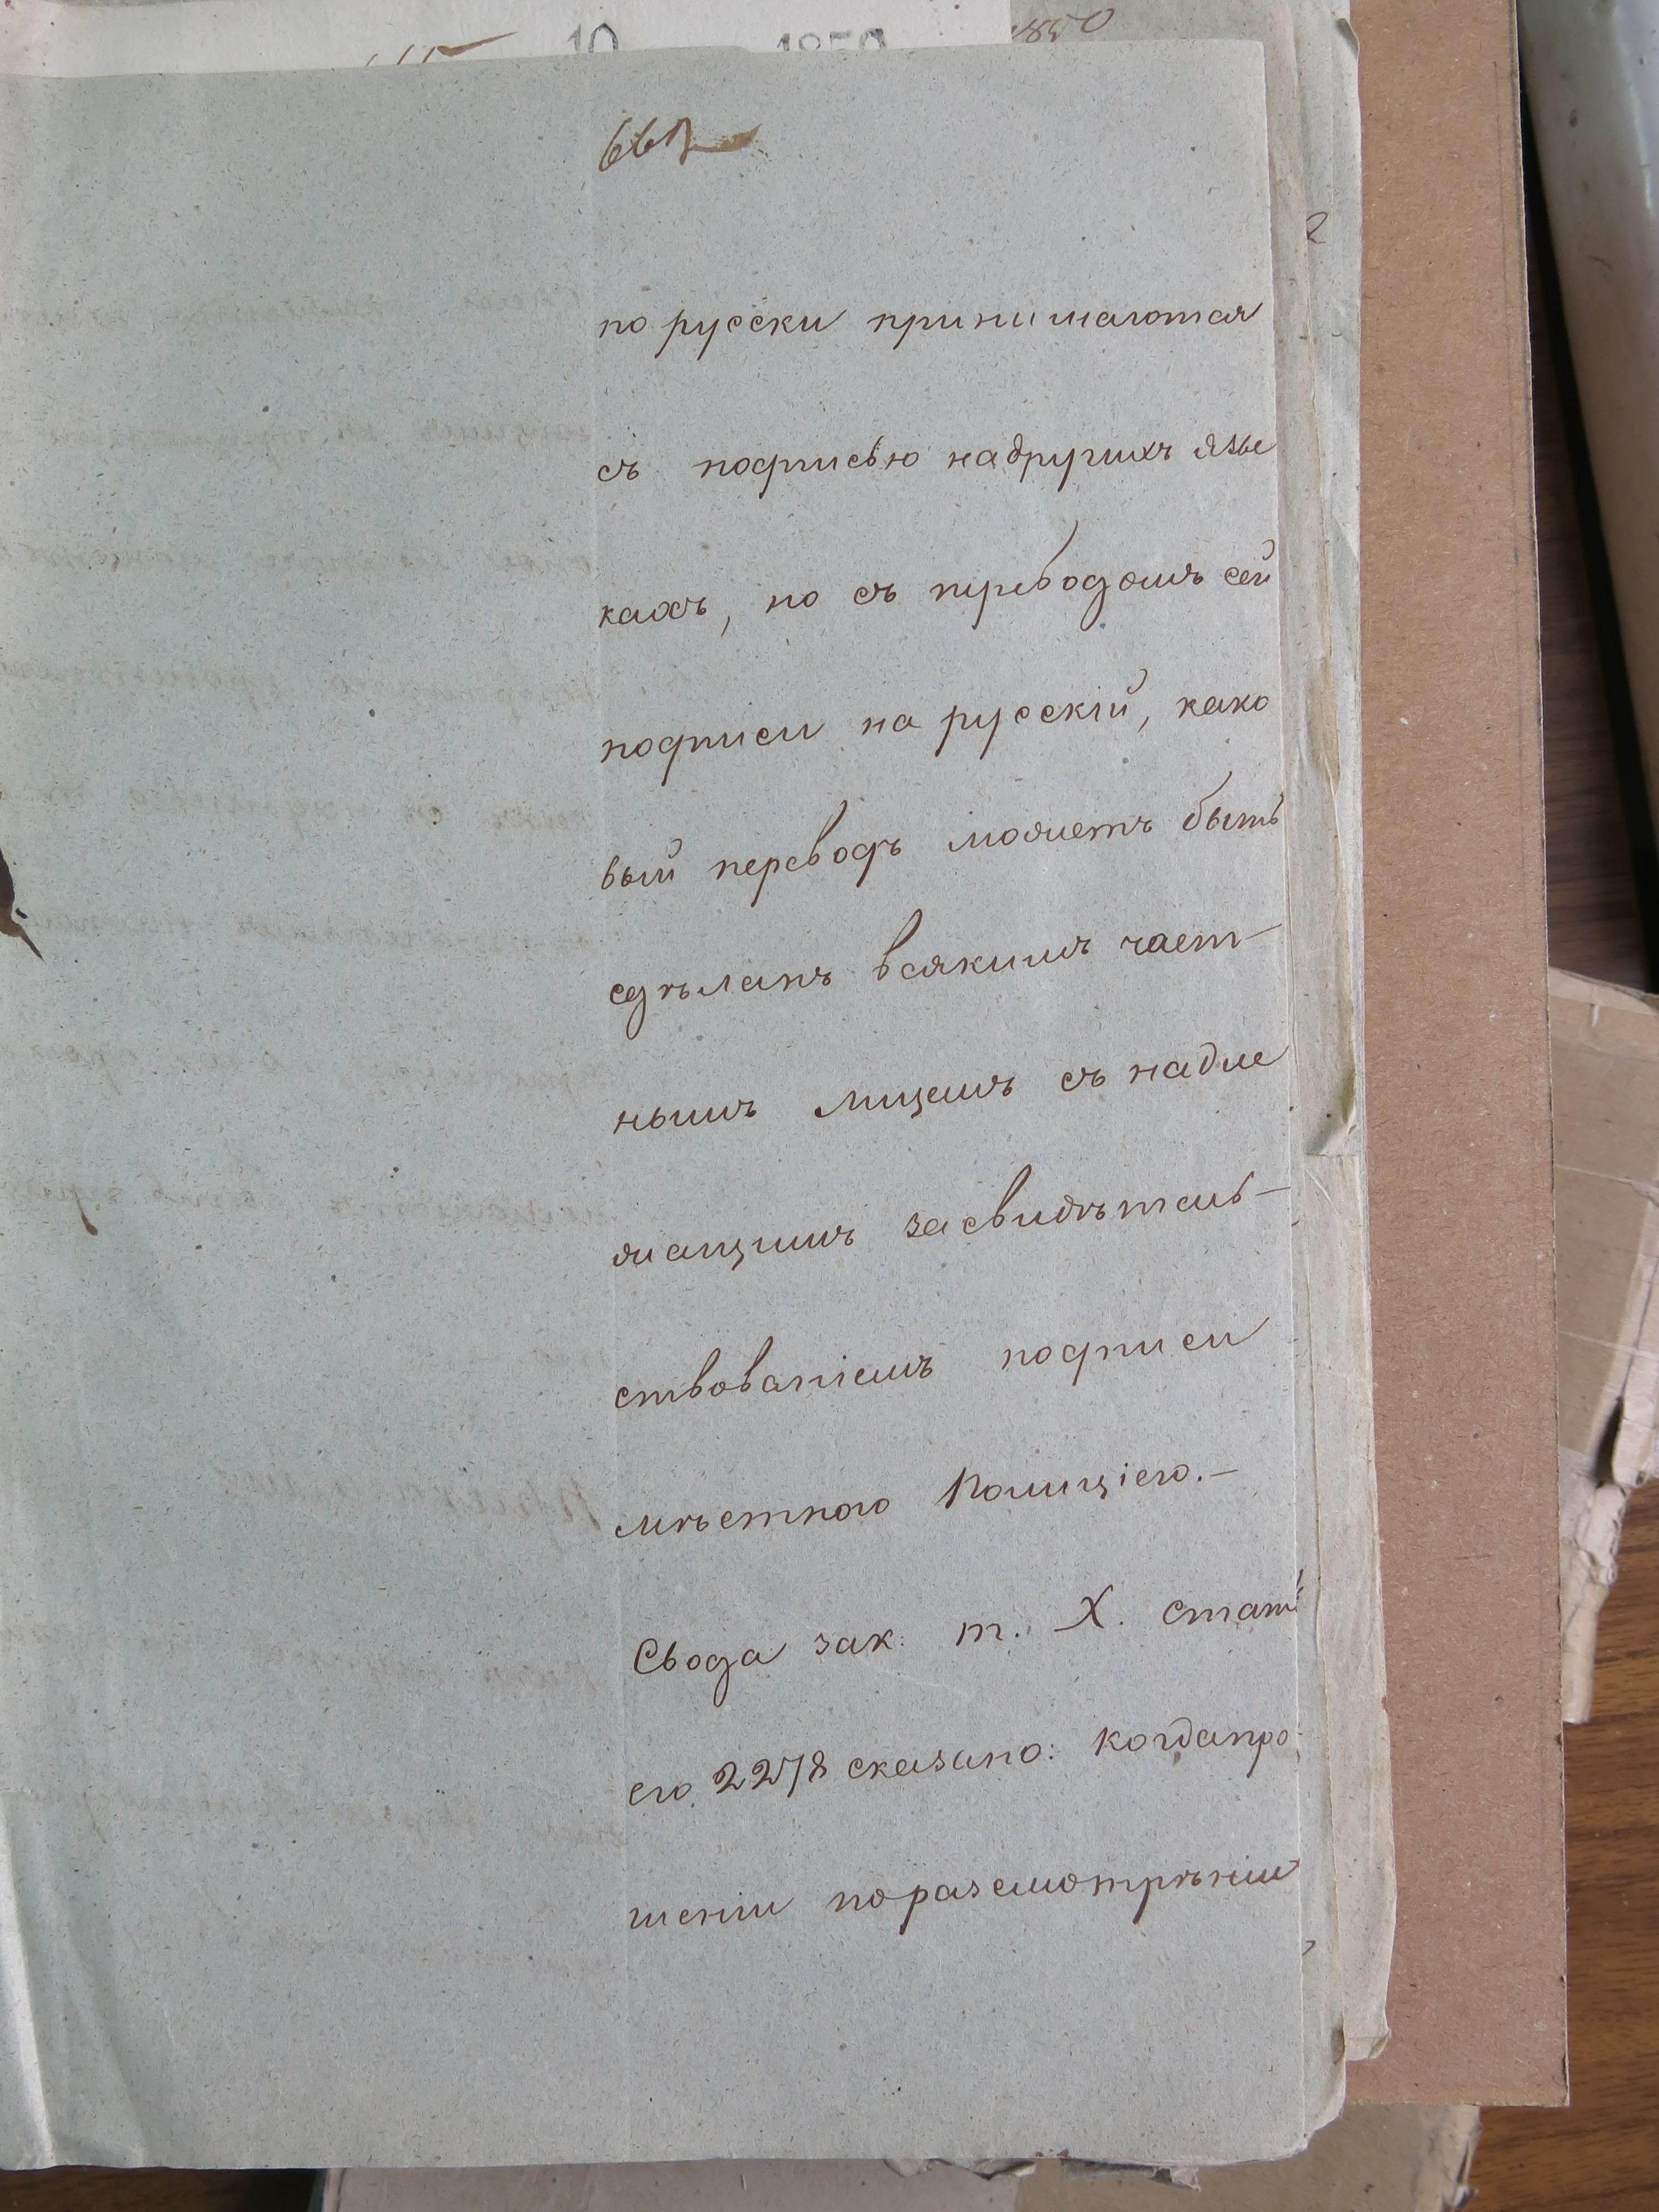 10 1850
1850
по русски принимаются
съ подписью надругихъ язы
кахъ, но съ переводомъ сей
подписи на русскій, како
вый переводъ можетъ быть
сдѣланъ всякимъ част-
нымъ лицемъ съ надле
жащимъ засвидѣтель-
ствованіемъ подписи
мѣстною Полиціею.-
Свода зак: т. X. стать
ею 2278 сказано: когдапро
шеніи поразсмотрѣніи